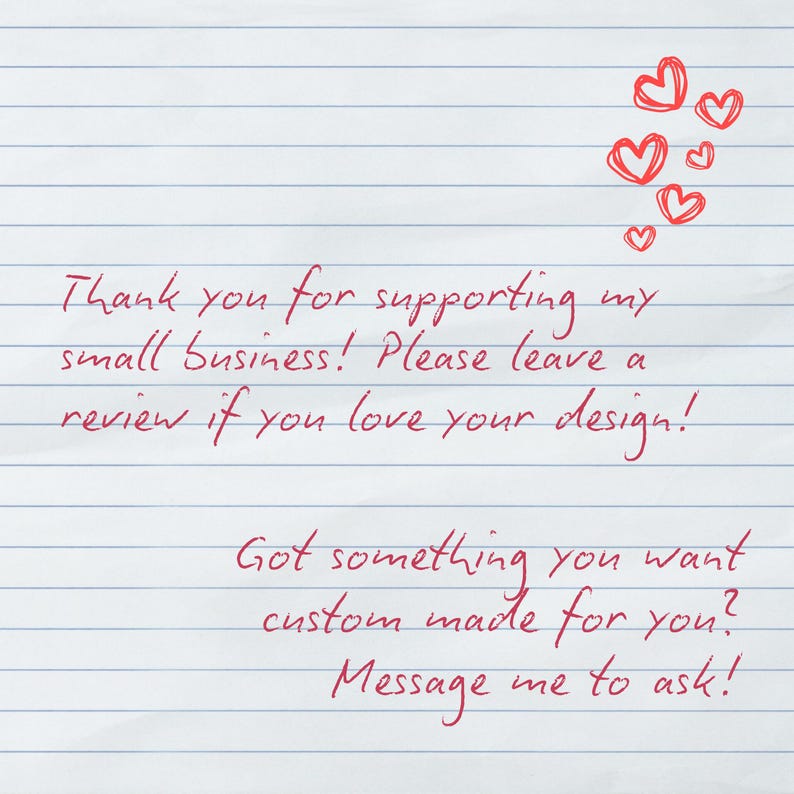 Thank you for supporting my
small business! Please leave a
review if you love your design!
Got something you want
custom made for you?
Message me to ask!